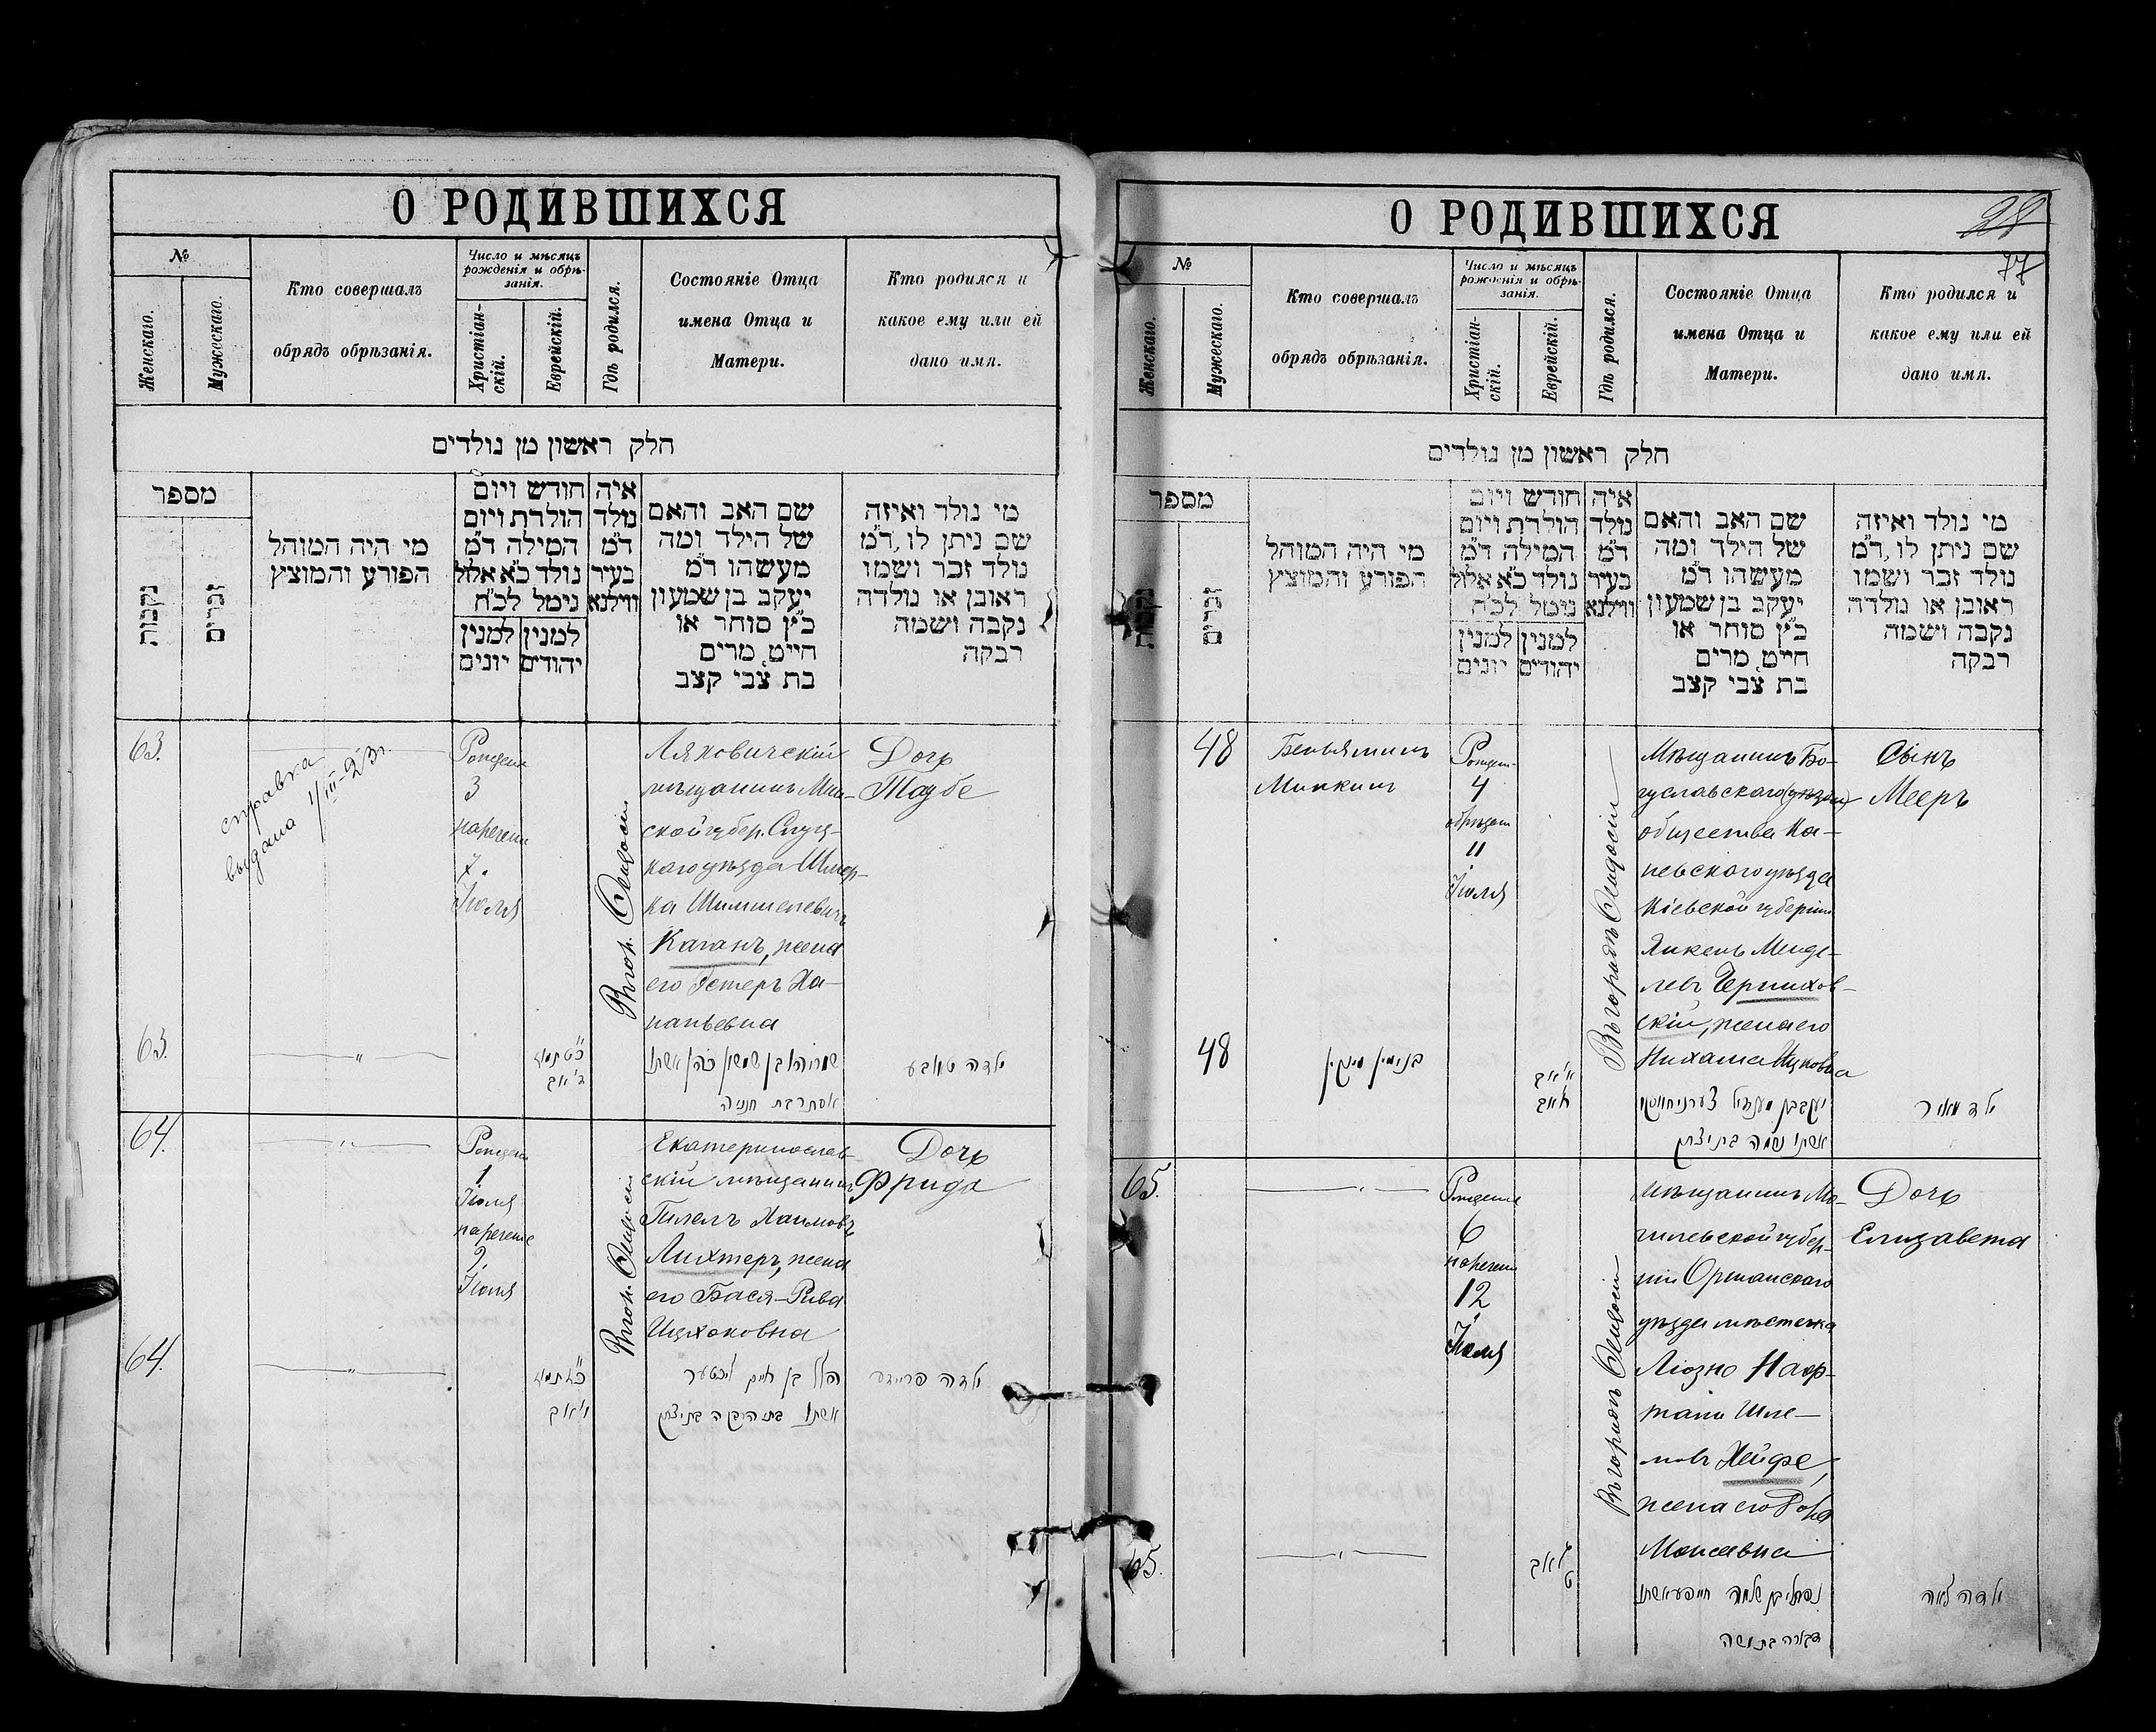 О РОДИВШИХСЯ
№
Женскаго.
Мужескаго.
Кто совершалъ
обрядъ обрѣзанія.
Число и мѣсяцъ
рожденія и обрѣ-
занія.
Христіан-
скій.
Еврейскій.
Гдѣ родился.
Состояніе Отца
имена Отца и
Матери.
Кто родился и
какое ему или ей
дано имя.
חלק ראשון מן נולדים
מספר
נקבות
זכרים
מי היה המוהל
הפורע והמוצץ
חודש ויום
הולדת ויום
המילה ד״מ
נולד כ״א אלול
נימל לכ״ח
למנין
יהודים
למנין
יונים
איה
נולד
ד״מ
בעיר
ווילנא
שם האב והאם
של הילד ומה
מעשהו ד״מ
יעקב בן שמעון
כ״ץ סוחר או
חייט, מרים
בת צבי קצב
מי נולד ואיזה
שם ניתן לו, ד״מ
נולד זכר ושמו
ראובן או נולדה
נקבה ושמה
רבקה
63.
справка
выдана 1/III-23г.
3
7.
Іюля
Ляховичскій
мѣщанинъ Мин-
ской губер. Слуц-
каго уѣзда Шмер-
ка Шимшелевичъ
Каганъ, жена
его Эстеръ Ха-
наньевна
Дочь
Таубе
63.
כ״ט תמוז
ילדה טויבע
אסתר בת חנניה
64.
1
Іюля
9
Іюля
Екатеринослав-
скій мѣщанинъ
Гилелъ Хаимовъ
Лихтеръ, жена
его Бася-Рива
Ицхоковна
Дочь
Фрида
64.
הלל בן חיים ליכטער
ילדה פריידע
О РОДИВШИХСЯ
28
77
№
Женскаго.
Мужескаго.
Кто совершалъ
обрядъ обрѣзанія.
Число и мѣсяцъ
рожденія и обрѣ-
занія.
Христіан-
скій.
Еврейскій.
Гдѣ родился.
Состояніе Отца
имена Отца и
Матери.
Кто родился и
какое ему или ей
дано имя.
חלק ראשון מן נולדים
מספר
נקבות
זכרים
מי היה המוהל
הפורע והמוצץ
חודש ויום
הולדת ויום
המילה ד״מ
נולד כ״א אלול
נימל לכ״ח
למנין
יהודים
למנין
יונים
איה
נולד
ד״מ
בעיר
ווילנא
שם האב והאם
של הילד ומה
מעשהו ד״מ
יעקב בן שמעון
כ״ץ סוחר או
חייט, מרים
בת צבי קצב
מי נולד ואיזה
שם ניתן לו, ד״מ
נולד זכר ושמו
ראובן או נולדה
נקבה ושמה
רבקה
48
Беньяминъ
Минкинъ
4
11
Іюля
Въ городѣ Ѳеодосіи
Мѣщанинъ Бо-
гуславскаго
общества Ка-
невскаго уѣзда
Кіевской губерніи
Янкель Менде-
левъ Чернихов-
скій, жена его
Нихама Ицковна
Сынъ
Мееръ
48
בנימין מינקין
ילד מאיר
65.
6
12
Іюля
Въ городѣ Ѳеодосіи
мѣщанинъ Мо-
гилевской губер-
ніи Оршанскаго
уѣзда мѣстечка
Ліозно Наф-
тали Шле-
мовъ Хейфе,
жена его
Моисеевна
Дочь
Елизавета
65.
דבורה בת משה
ילדה לאה